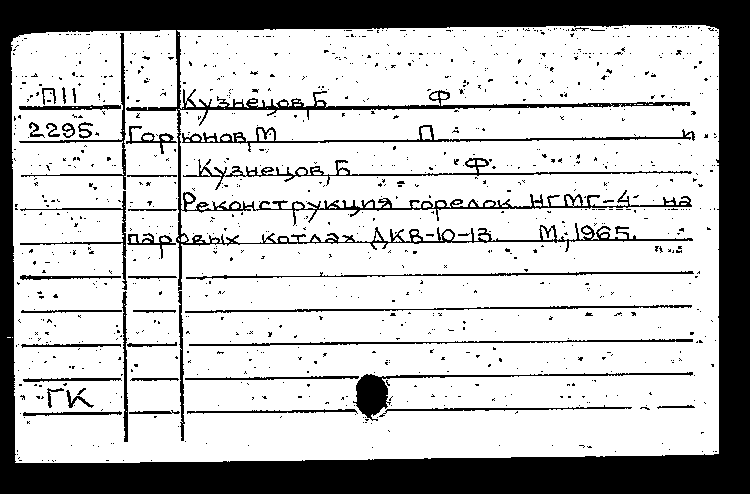 П11 Кузнецов, Б Ф
2295. Горюнов, М П и
Кузнецов, Б Ф.
Реконструкция горелок НГМГ-4 на
паровых котлах ДКВ-10-13. М., 1965.
ГК